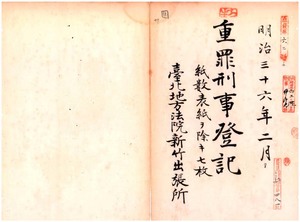 明治三十六年二月
重罪刑事登記
紙数表紙ヲ除キ七枚
臺北地方法院新竹出張所